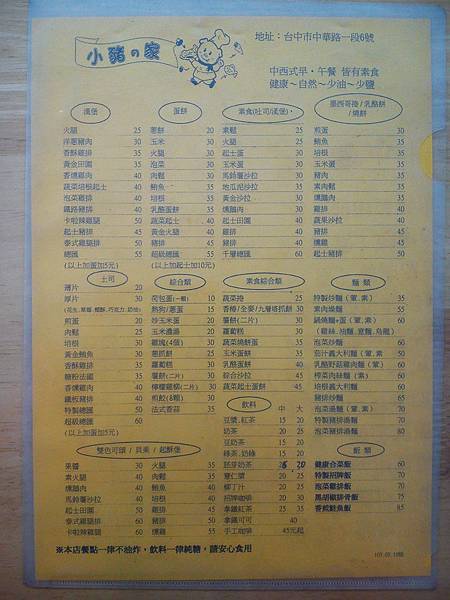 小豬の家
地址：台中市中華路一段6號
中西式早・午餐 皆有素食
健康～自然～少油～少鹽
漢堡
火腿 25
洋蔥豬肉 30
香酥雞排 35
黃金田園 35
香燻雞肉 40
蔬菜培根起士 40
泡菜雞排 40
鐵路豬排 40
卡啦辣雞腿 50
起士豬排 45
泰式雞腿排 50
總匯 55
(以上加蛋加5元)
蛋餅
蔥餅 20
玉米 30
火腿 30
泡菜 30
肉鬆 30
鮪魚 35
培根 35
乳酪蛋餅 40
蔬菜起士 40
黃金火腿 40
豬排 45
燻雞 45
超級總匯 60
(以上加起士加10元)
素食(吐司/漢堡)
素鬆 25
火腿 25
起士蛋 30
玉米蛋 30
馬鈴薯沙拉 35
地瓜泥沙拉 35
黃金沙拉 35
燻鵝肉 35
起士田園 40
雞排 40
豬排 40
千層總匯 60
墨西哥捲/乳酪餅/燒餅
煎蛋 30
鮪魚 35
培根 35
玉米蛋 35
豬肉 35
素肉鬆 35
燻鵝肉 35
雞排 40
蔬果沙拉 40
豬排 45
燻雞 45
起士豬排 50
土司
薄片 20
厚片 30
煎蛋 20
肉鬆 25
豬肉 30
黃金鮪魚 30
香酥雞排 35
糖粉法國 30
香燻雞肉 40
鐵板豬排 40
特製總匯 50
超級總匯 60
(以上加蛋加5元)
綜合類
荷包蛋(一顆) 10
熱狗/蔥蛋 15
炒玉米蛋 20
玉米濃湯 20
雞塊(4個) 30
蔥抓餅 25
蘿蔔糕 30
薯餅(二片) 30
檸檬雞柳(二片) 30
煎餃(8顆) 30
法式香蒜 35
素食綜合類
蔬菜捲 25
香椿/全麥/九層塔抓餅 30
薯餅(二片) 30
蘿蔔糕 30
蔬菜燒餅蛋 35
玉米蛋餅 35
乳酪蛋餅 40
綜合沙拉 45
蔬菜起士蛋餅 45
麵類
特製炒麵(葷.素) 35
素肉燥麵 55
鍋燒麵+蛋(葷.素) 60
(雞絲.油麵.意麵.烏龍)
泡菜炒麵 60
茄汁義大利麵(葷.素) 60
乳酪野菇雞肉麵(葷.素) 70
榨菜肉絲麵(素) 60
培根義大利麵 60
豬排炒麵 65
泡菜湯麵(葷.素) 70
特製豬排湯麵 80
泡菜豬排湯麵 80
飲料 中 大
豆漿.紅茶 15 20
奶茶 15 20
豆奶茶 15 20
綠茶.奶綠 15 20
胚芽奶茶 15 20
薏仁漿 20 25
柳丁汁 20 25
招牌咖啡 20 30
拿鐵紅茶 25 35
拿鐵可可 40
手工咖啡 45元起
雙色可頌/貝果/起酥堡
果醬 30
素火腿 40
燻鵝肉 40
馬鈴薯沙拉 40
起士田園 50
泰式雞腿 60
卡啦雞腿 60
火腿 35
肉鬆 35
鮪魚 40
培根 40
雞排 45
豬排 50
燻雞 55
飯類
健康合菜飯 60
特製招牌飯 70
泡菜雞排飯 70
黑胡椒排骨飯 75
香煎鮭魚飯 85
※本店餐點一律不油炸，飲料一律純糖，請安心食用